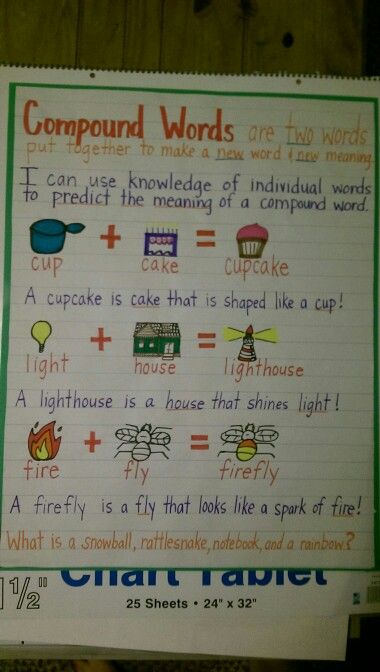 Compound Words are two words
put together to make a new word & new meaning.
I can use knowledge of individual words
to predict the meaning of a compound word.
cup + cake = cupcake
A cupcake is cake that is shaped like a cup!
light + house = lighthouse
A lighthouse is a house that shines light!
fire + fly = firefly
A firefly is a fly that looks like a spark of fire!
What is a snowball, rattlesnake, notebook, and a rainbow?
1½" Chart Tablet
25 Sheets • 24" x 32"